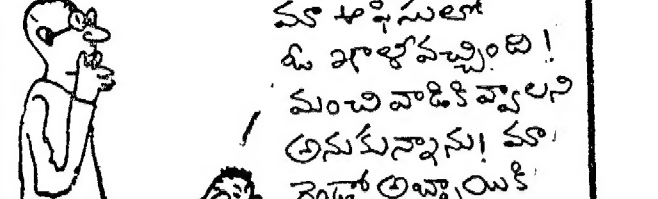 మా ఆఫీసులో
ఓ ఖాళీవచ్చింది!
మంచి వాడికివ్వాలని
అనుకున్నాను! మా
రెండో అబ్బాయికి